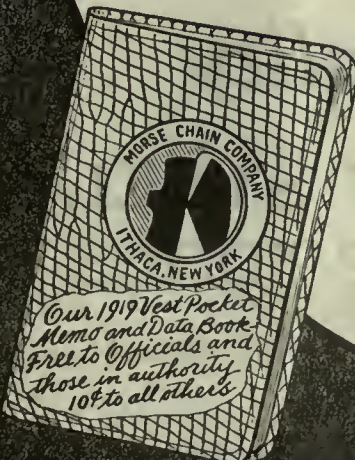 MORSE CHAIN COMPANY
ITHACA, NEW YORK
Our 1919 Vest Pocket
Memo and Data Book-
Free to Officials and
those in authority
10¢ to all others